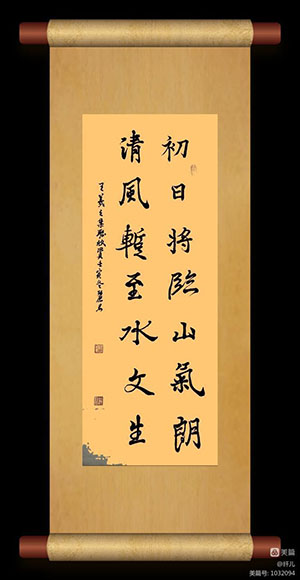 初日将臨山氣朗
清風暫至水文生
王羲之集聯壬寅冬
美篇
@纤儿
美篇号: 1032094